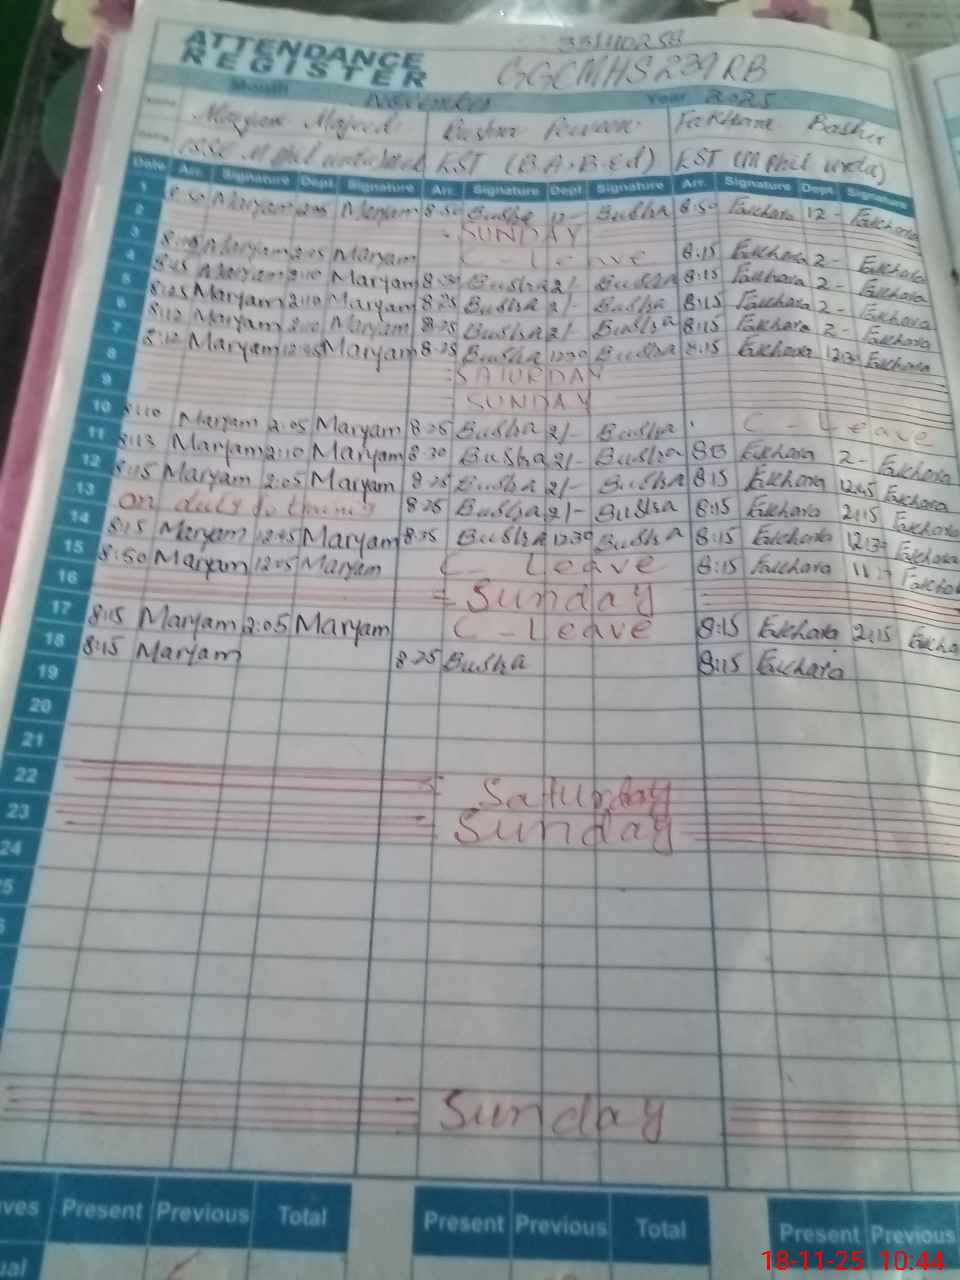 33110258
ATTENDANCE REGISTER GGCMHS 239 RB
Month November Year 2025
Name Maryam Majeed Bushra Parveen Fakhara Bashir
EST (B.A. B.Ed) EST (M phil urdu)
Date Arr. Signature Dept. Signature Arr. Signature Dept. Signature Arr. Signature Dept. Signature
1 8:50 Maryam Maryam 8:50 Bushra 12- Bushra 8:50 Fakhara 12- Fakhara
2 SUNDAY
3 Maryam 2:05 Maryam C-Leave 8:15 Fakhara 2- Fakhara
4 Maryam 2:10 Maryam Bushra 2/- Bushra 8:15 Fakhara 2- Fakhara
5 8:25 Maryam 2:10 Maryam 8:25 Bushra 2/- Bushra 8:15 Fakhara 2- Fakhara
6 8:12 Maryam Maryam 8:25 Bushra 2/- Bushra 8:15 Fakhara 2- Fakhara
7 8:12 Maryam Maryam 8:25 Bushra 12:30 Bushra 8:15 Fakhara 12:30 Fakhara
8 SATURDAY
9 SUNDAY
10 8:10 Maryam 2:05 Maryam 8:25 Bushra 2/- Bushra C-Leave
11 8:13 Maryam 2:10 Maryam 8:30 Bushra 2/- Bushra Fakhara 2- Fakhara
12 8:15 Maryam 2:05 Maryam 8:25 Bushra 2/- Bushra 8:15 Fakhara 12:45 Fakhara
13 on duty 8:25 Bushra 2/- Bushra 8:15 Fakhara 2:15 Fakhara
14 8:15 Maryam 12:45 Maryam 8:25 Bushra 12:30 Bushra 8:15 Fakhara 12:30 Fakhara
15 8:50 Maryam 12:05 Maryam C-Leave 8:15 Fakhara Fakhara
16 Sunday
17 8:15 Maryam 2:05 Maryam C-Leave 8:15 Fakhara 2:15 Fakha
18 8:15 Maryam 8:25 Bushra 8:15 Fakhara
19
20
21
22 Saturday
23 Sunday
24
Sunday
Present Previous Total Present Previous Total Present Previous
18-11-25 10:44